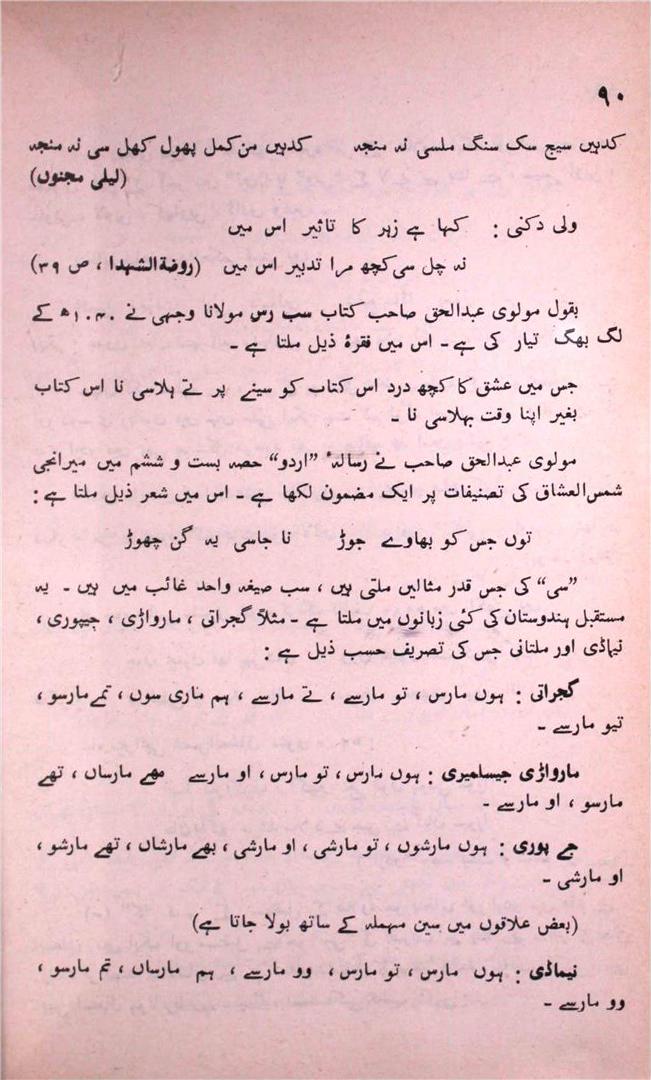 ۹۰
کدہیں سیج سک سنگ ملسی نہ منجہ کدہیں من کمل پھول کھل سی نہ منجہ
(لیلی مجنوں)
ولی دکنی : کہا ہے زہر کا تاثیر اس میں
نہ چل سی کچھ مرا تدبیر اس میں (روضۃ الشہدا ، ص ۳۹)
بقول مولوی عبدالحق صاحب کتاب سب رس مولانا وجہی نے ۱۰۴۰ھ کے
لگ بھگ تیار کی ہے ۔ اس میں فقرۂ ذیل ملتا ہے ۔
جس میں عشق کا کچھ درد اس کتاب کو سینے پر تے ہلاسی نا اس کتاب
بغیر اپنا وقت بھلاسی نا ۔
مولوی عبدالحق صاحب نے رسالہ ”اردو“ حصہ بست و ششم میں میرانجی
شمس العشاق کی تصنیفات پر ایک مضمون لکھا ہے ۔ اس میں شعر ذیل ملتا ہے :
توں جس کو بھاوے جوڑ نا جاسی یہ گن چھوڑ
”سی“ کی جس قدر مثالیں ملتی ہیں ، سب صیغہ واحد غائب میں ہیں ۔ یہ
مستقبل ہندوستان کی کئی زبانوں میں ملتا ہے ۔ مثلاً گجراتی ، مارواڑی ، جیپوری ،
نیماڈی اور ملتانی جس کی تصریف حسب ذیل ہے :
گجراتی : ہوں مارس ، تو مارسے ، تے مارسے ، ہم ماری سوں ، تمے مارسو ،
تیو مارسے ۔
مارواڑی جیسلمیری : ہوں مارس ، تو مارس ، او مارسے مھے مارساں ، تھے
مارسو ، او مارسے ۔
جے پوری : ہوں مارشوں ، تو مارشی ، او مارشی ، بھے مارشاں ، تھے مارشو ،
او مارشی ۔
(بعض علاقوں میں سین مہملہ کے ساتھ بولا جاتا ہے)
نیماڈی : ہوں مارس ، تو مارس ، وو مارسے ، ہم مارساں ، تم مارسو ،
وو مارسے ۔